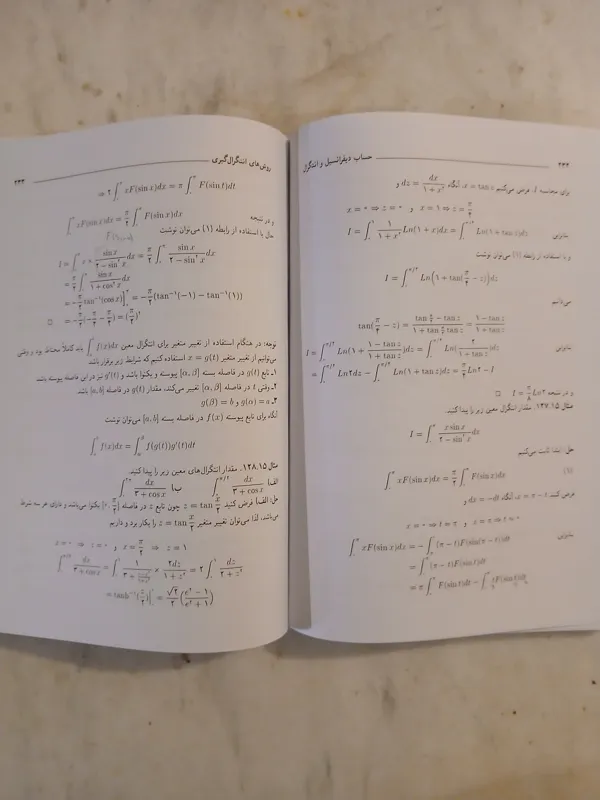 حساب دیفرانسیل و انتگرال
برای محاسبه I، فرض می‌کنیم x = tan z، آنگاه dz = dx/(1 + x²) و
x = ۰ ⇒ z = ۰ و x = ۱ ⇒ z = π/۴
بنابراین I = ∫ 1/(1 + x²) Ln(1 + x)dx = ∫ Ln(1 + tan z)dz
و با استفاده از رابطه (۱) می‌توان نوشت
I = ∫ Ln(1 + tan(π/۴ − z))dz
می‌دانیم
tan(π/۴ − z) = (tan π/۴ − tan z)/(1 + tan π/۴ tan z) = (1 − tan z)/(1 + tan z)
بنابراین I = ∫ Ln(1 + (1 − tan z)/(1 + tan z))dz = ∫ Ln(۲/(1 + tan z))dz
= ∫ Ln۲dz − ∫ Ln(1 + tan z)dz = π/۴ Ln۲ − I
و در نتیجه I = π/۸ Ln۲
مثال ۱۲۷.۱۵. مقدار انتگرال معین زیر را پیدا کنید.
I = ∫ x sin x/(۲ − sin² x) dx
حل: ابتدا ثابت می‌کنیم
∫ xF(sin x)dx = π/۲ ∫ F(sin x)dx (۱)
فرض کنید x = π − t، آنگاه dx = −dt و
x = ۰ ⇒ t = π و x = π ⇒ t = ۰
بنابراین ∫ xF(sin x)dx = − ∫ (π − t)F(sin(π − t))dt
= ∫ (π − t)F(sin t)dt
= π ∫ F(sin t)dt − ∫ tF(sin t)dt
روش‌های انتگرال‌گیری
⇒ ۲ ∫ xF(sin x)dx = π ∫ F(sin t)dt
و در نتیجه ∫ xF(sin x)dx = π/۲ ∫ F(sin x)dx
حال با استفاده از رابطه (۱) می‌توان نوشت
I = ∫ x × sin x/(۲ − sin² x) dx = π/۲ ∫ sin x/(۲ − sin² x) dx
= π/۲ ∫ sin x/(1 + cos² x) dx
= −π/۲ tan⁻¹(cos x)] = −π/۲ (tan⁻¹(−1) − tan⁻¹(1))
= −π/۲(−π/۴ − π/۴) = (π/۲)²
توجه: در هنگام استفاده از تغییر متغیر برای انتگرال معین ∫ f(x)dx باید کاملاً محتاط بود و وقتی
می‌توانیم از تغییر متغیر x = g(t) استفاده کنیم که شرایط زیر برقرار باشد
۱ـ تابع g(t) در فاصله بسته [α, β] پیوسته و یکنوا باشد و g′(t) نیز در این فاصله پیوسته باشد
۲ـ وقتی t در فاصله [α, β] تغییر می‌کند، مقدار g(t) در فاصله [a, b] باشد
۳ـ g(α) = a و g(β) = b
آنگاه برای تابع پیوسته f(x) در فاصله بسته [a, b] می‌توان نوشت
∫ f(x)dx = ∫ f(g(t))g′(t)dt
مثال ۱۲۸.۱۵. مقدار انتگرال‌های معین زیر را پیدا کنید.
الف) ∫ dx/(۳ + cos x) ب) ∫ dx/(۳ + cos x)
حل: الف) فرض کنید z = tan x/۲ چون تابع z در فاصله [۰, π/۲] یکنوا می‌باشد و دارای هر سه شرط
می‌باشد، لذا می‌توان تغییر متغیر z = tan x/۲ را بکار برد و داریم
x = ۰ ⇒ z = ۰ و x = π/۲ ⇒ z = ۱